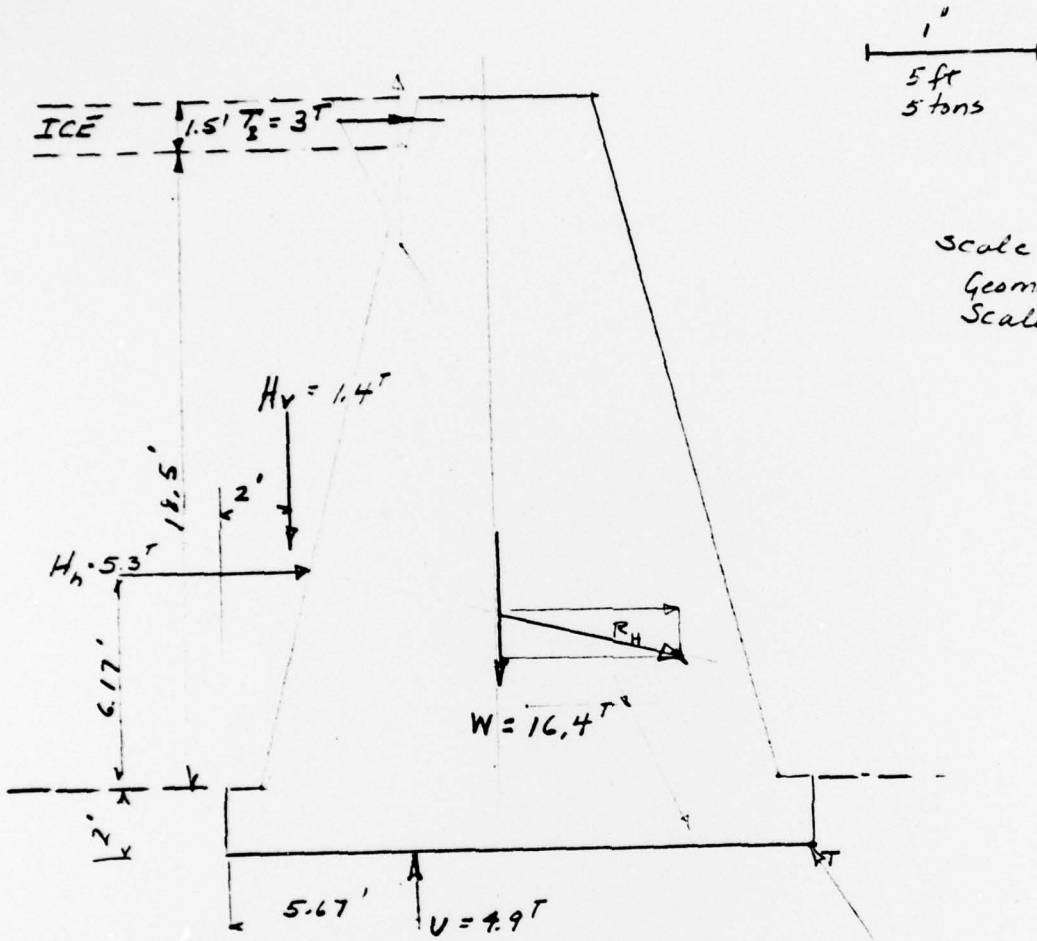 1"
5 ft
5 tons
ICE
1.5' T_I = 3ᵀ
Scale
Geom
Scal
H_v = 1.4ᵀ
18.5'
2'
H_h = 5.3ᵀ
6.17'
R_H
W = 16.4ᵀ
2'
T
5.67'
U = 4.9ᵀ